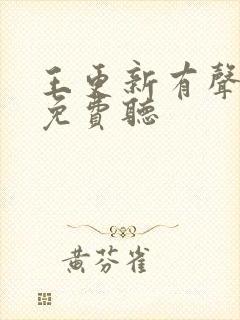 王更新有聲
免費聽
黃芬雀